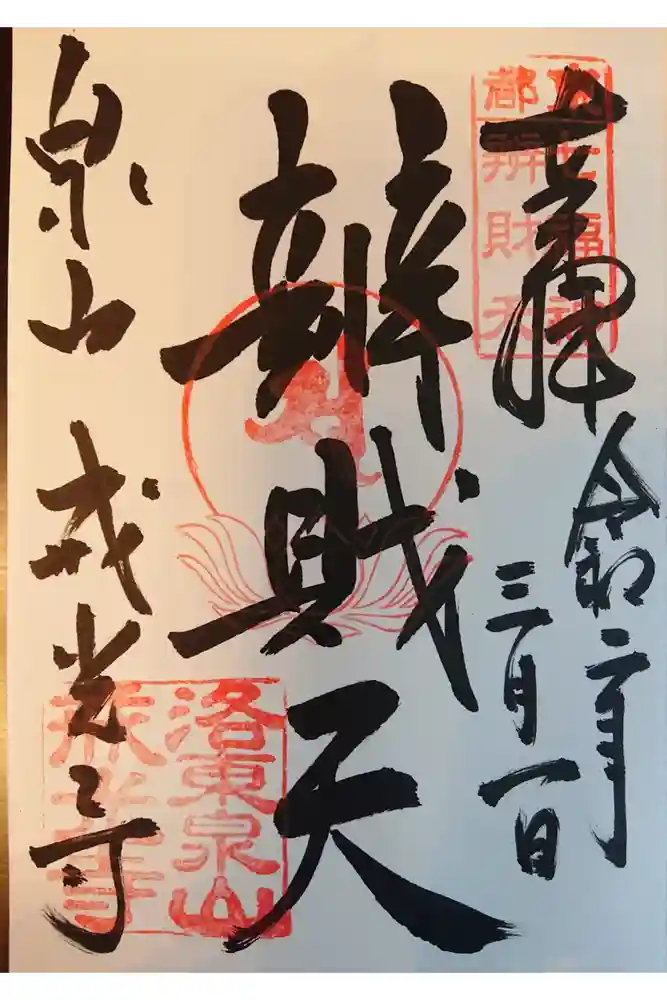 奉拝
令和二年
三月一日
辨財天
泉山 戒光寺
七福神
都辨財天
洛東泉山
戒光寺